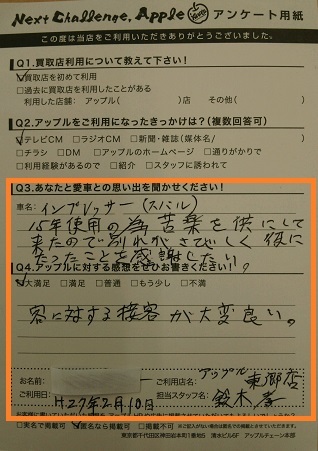 Next Challenge, Apple アンケート用紙
この度は当店をご利用いただきありがとうございました。
Q1.買取店利用について教えて下さい!
☑買取店を初めて利用
□過去に買取店を利用したことがある
利用した店舗: アップル( )店 その他( )
Q2.アップルをご利用になったきっかけは?(複数回答可)
☑テレビCM □ラジオCM □新聞・雑誌(媒体名/ )
□チラシ □DM □アップルのホームページ □通りがかりで
□利用経験があるので □紹介 □スタッフに誘われて
Q3.あなたと愛車との思い出を聞かせください!
車名: インプレッサー(スバル)
15年使用の為苦楽を供にして
来たので別れがさびしく役に
たったことを感謝したい。
Q4.アップルに対する感想をぜひお書きください!
☑大満足 □満足 □普通 □もう少し □不満
客に対する接客が大変良い。
お名前:
ご利用店名: アップル 東郷店
ご利用日: H27年2月10日
担当スタッフ名: 鈴木
□実名で掲載可 ☑匿名なら掲載可
東京都千代田区神田岩本町1番地5 清水ビル6F アップルチェーン本部